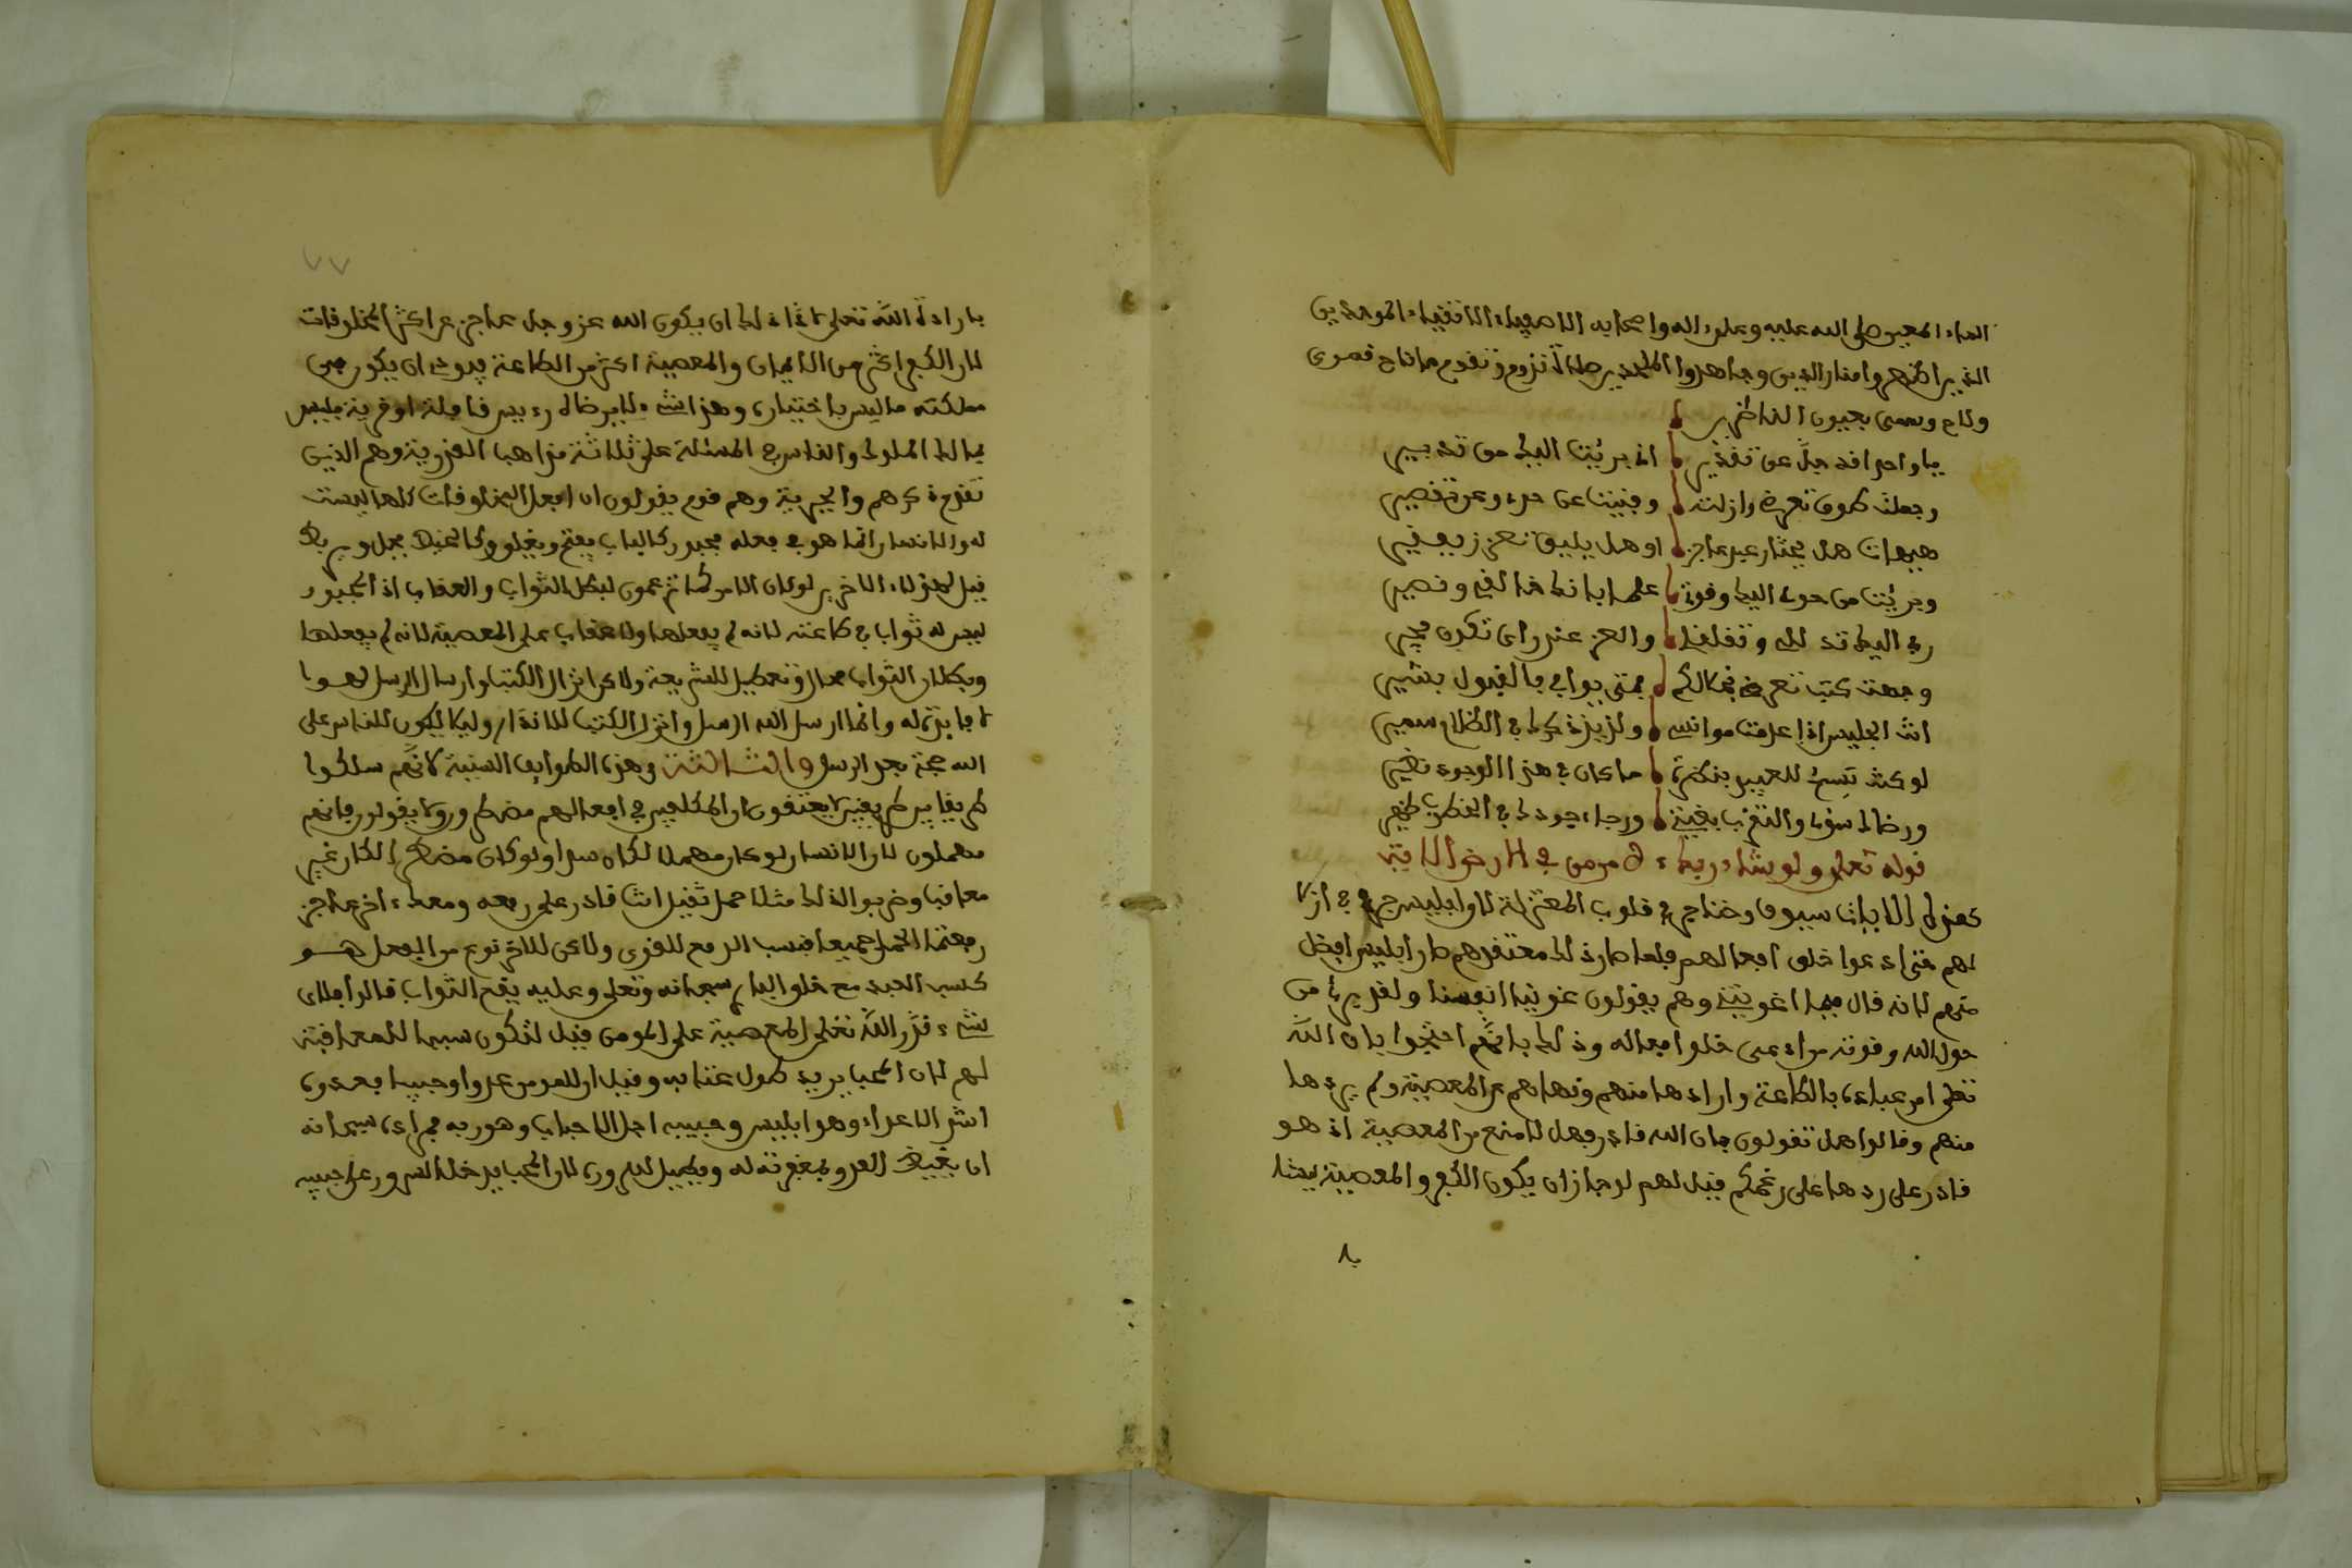 الماء المعين صلى الله عليه وعلى اله واصحابه الاصفياء الاتقياء الموحدين
الذين اظهروا منار الدين وجاهدوا الملحدين صلاة تدوم وتقدم ما ناح قمرى
ولاح وسمى بعيون الناظرين
يا واحدا قد جل عن تقدير انى برئت اليك من تدبير
وجعلت طوق تعرض وازلته وفنيت عن حول وعن تقصير
هيهات هل يختار عبد عاجز او هل يليق تعزز بفقير
وبرئت من حول اليك وقوة علما بانك خالقى ونصير
رب اليك تذللى وتقلقلى والعز عندى ان تكون مجير
وجهت كتب تعرض لجمالكم فمتى يوافى بالقبول بشير
انت الجليس اذا عدمت موانس ولذيذ ذكرك فى الظلام سمير
لو كنت تسمح للعبيد بنظرة ما كان فى هذا الوجود نظير
ورضاك سؤلى والتقرب بغية ورجاء جودك فى الخطوب ظهير
قوله تعلى ولو شاء ربك لامن من فى الارض الاية
كهذه الايات سيوف وخناجر فى قلوب المعتزلة لان ابليس
لهم حتى ادعوا خلق افعالهم فلما صار ذلك معتقدهم صار ابليس افضل
منهم لانه قال فبما اغويتنى وهم يقولون غوينا انفسنا ولقد برئ من
حول الله وقوته من ادعى خلق افعاله وذلك بانهم احتجوا بان الله
تعلى امر عباده بالطاعة وارادها منهم ونهاهم عن المعصية ولم يردها
منهم وقالوا هل تقولون بان الله قادر وهل لا منع من المعصية اذ هو
قادر على ردها على زعمكم فيل لهم لو جاز ان يكون الكفر والمعصية ليشا
با
٧٧
بارادة الله تعلى لادى ذلك ان يكون الله عز وجل عاجز عن اكثر المخلوقات
لان الكفر اكثر من الايمان والمعصية اكثر من الطاعة فيودى ان يكون فى
مملكته ما ليس باختياره وهذا شىء لا يرضاه رءيس قبيلة او قرية فليس
بمالك الملوك والناس فى المسئلة على ثلاثة مذاهب القدرية وهم الذين
تقدم ذكرهم والجبرية وهم قوم يقولون ان افعال المخلوقات كلها ليست
له والانسان انما هو فى فعله مجبور كالباب يفتح ويغلق وكالخيط
فيل لهؤلاء الاخرين لو كان الامر كما تزعمون لبطل الثواب والعقاب اذ المجبور
ليس له ثواب فى طاعته لانه لم يفعلها ولا عقاب على المعصية لانه لم يفعلها
وبطلان الثواب محال وتعطيل للشريعة ولا كان انزال الكتب وارسال الرسل لهوا
لا فايدة له وانما ارسل الله الرسل وانزل الكتب للانذار وليلا يكون للناس على
الله حجة بعد الرسل والثالثة وهذه الطوايف السنية لانهم سلكوا
طريقا بين طريقين لا يعتقدون ان المكلفين فى افعالهم مضطرون ولا يقولون بانهم
مهملون لان الانسان لو كان مهملا لكان سدا ولو كان مضطرا لكان غير
معاقب وضربوا لذلك مثلا حمل ثقيل انت قادر على رفعه ومعك اخر عاجز
رفعتما الحمل جميعا فنسب الرفع للقوى ولاكن للاخر نوع من الفعل هو
كسب العبد مع خلق البارى سبحانه وتعلى وعليه يقع الثواب قال فلاى
شىء قدر الله تعلى المعصية على المومن فيل لتكون سببا للمعاقبة
لهم لان المحب يريد طول عتابه وقيل ان للمومن عدوا وحبيبا فعدوه
اشر الاعداء وهو ابليس وحبيبه اجل الاحباب وهو ربه فمراده سبحانه
ان يغيظ العدو بمغفرته له ويطيل سروره لان المحب يدخل السرور على حبيبه